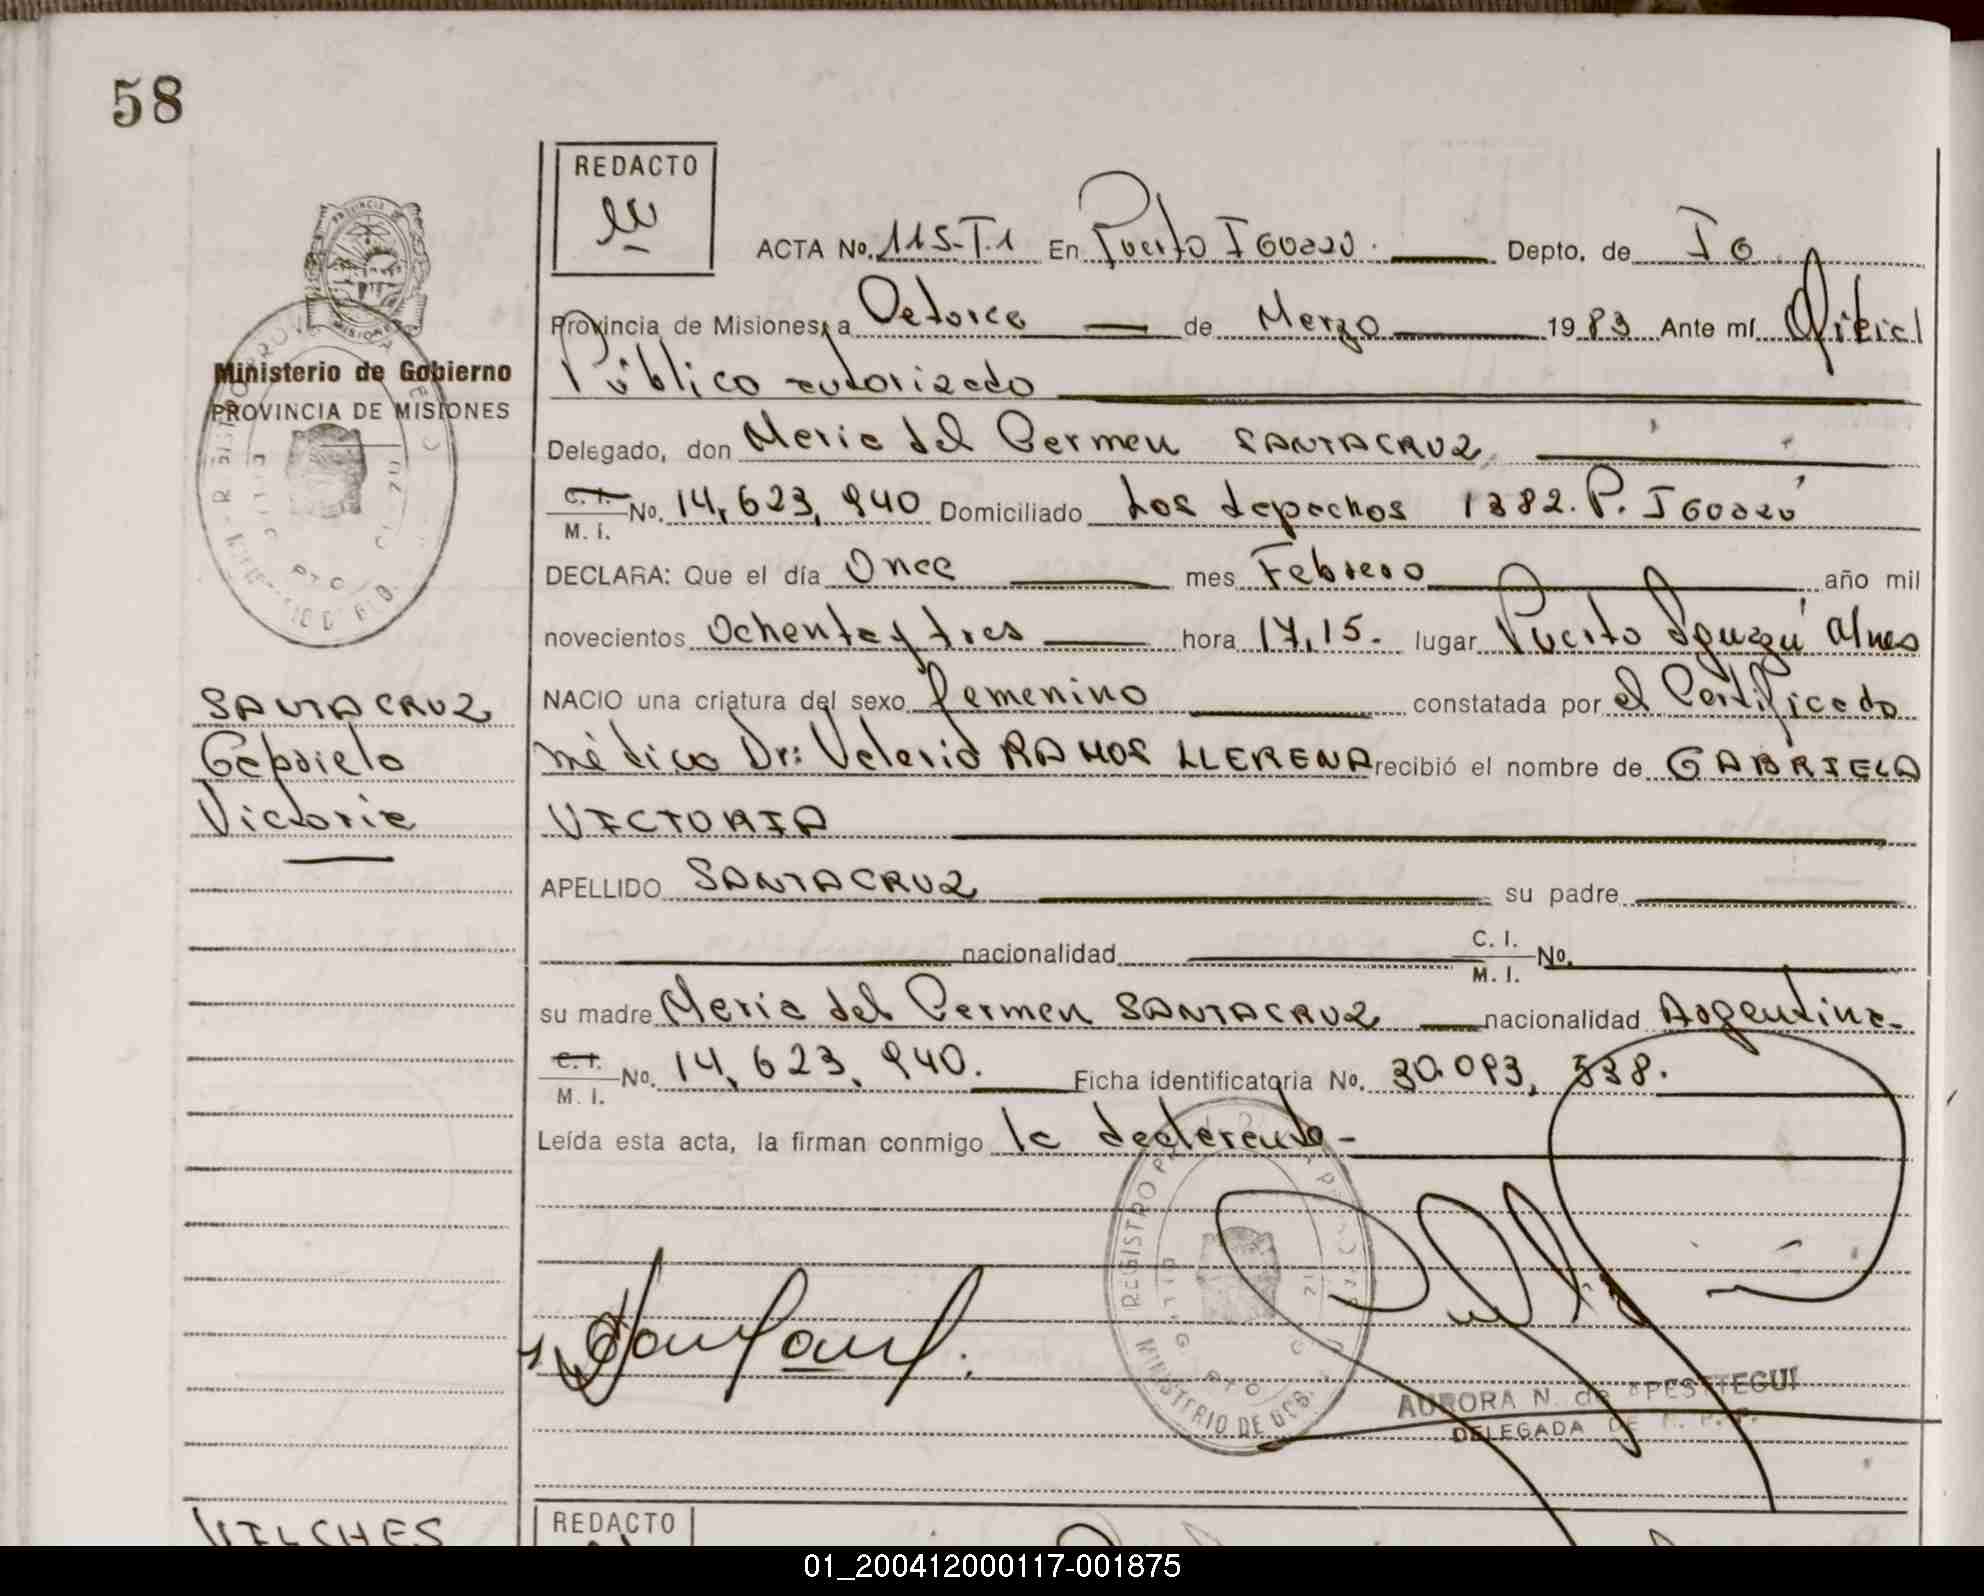 58
REDACTO
ACTA No. 115-T.1 En Puerto IGuazú. Depto. de IG
Provincia de Misiones, a Catorce de Marzo 1983 Ante mí Oficial
Público autorizado
Ministerio de Gobierno
PROVINCIA DE MISIONES
Delegado, don Maria del Carmen SANTACRUZ
C. I. M. I. No. 14,623,940 Domiciliado Los lapachos 1382. P. IGuazú
DECLARA: Que el día Once mes Febrero año mil
novecientos Ochenta y tres hora 17,15. lugar Puerto Iguazú Mnes
NACIO una criatura del sexo femenino constatada por el Certificado
médico Dr: Valerio RAMOS LLERENA recibió el nombre de GABRIELA
VICTORIA
SANTACRUZ
Gabriela
Victoria
APELLIDO SANTACRUZ su padre
nacionalidad C. I. M. I. No.
su madre Maria del Carmen SANTACRUZ nacionalidad Argentina-
C. I. M. I. No. 14,623,940. Ficha identificatoria No. 30.093,538.
Leída esta acta, la firman conmigo la declarante-
REGISTRO
MINISTERIO DE GOB.
AURORA N. de
DELEGADA DE R. P. P.
VILCHES
REDACTO
01_200412000117-001875